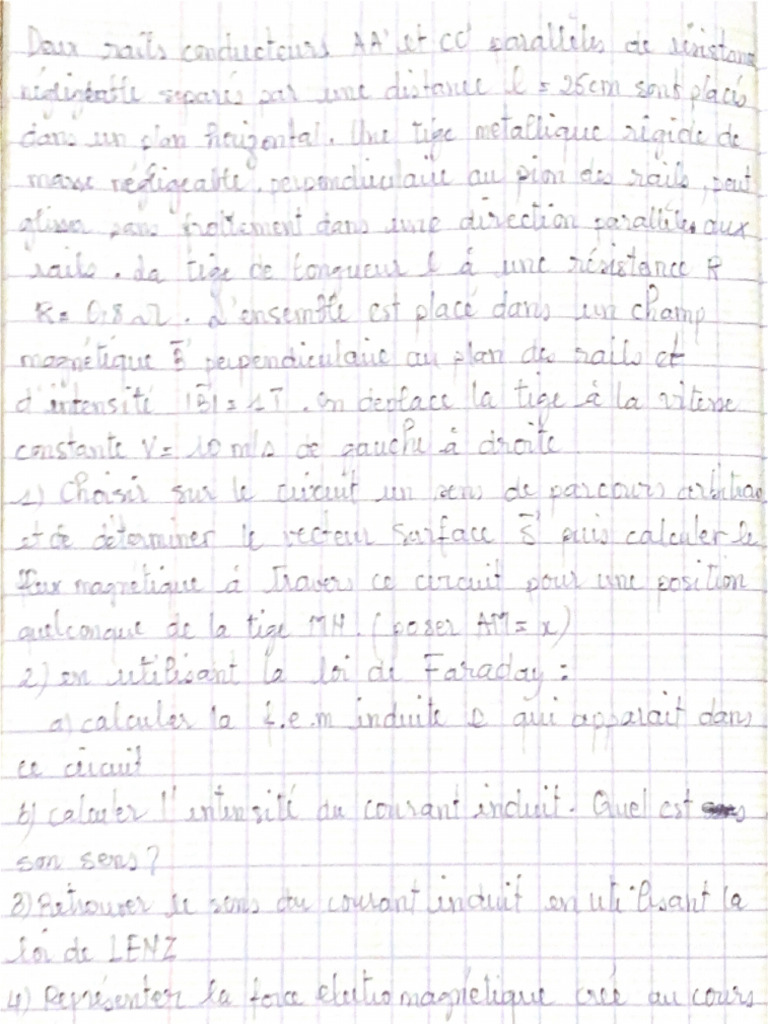 Deux rails conducteurs AA' et CC' parallèles de résistance
négligeable séparés par une distance l = 25cm sont placés
dans un plan horizontal. Une tige métallique rigide de
masse négligeable, perpendiculaire au plan des rails, peut
glisser sans frottement dans une direction parallèles aux
rails. La tige de longueur l à une résistance R
R = 0,8 Ω. L'ensemble est placé dans un champ
magnétique B⃗ perpendiculaire au plan des rails et
d'intensité |B⃗| = 1T. On déplace la tige à la vitesse
constante V = 10 m/s de gauche à droite
1) Choisir sur le circuit un sens de parcours arbitraire
et de déterminer le vecteur surface S⃗ puis calculer le
flux magnétique à travers ce circuit pour une position
quelconque de la tige MN. (poser AM = x)
2) en utilisant la loi de Faraday :
a) calculer la f.e.m induite e qui apparait dans
ce circuit
b) calculer l'intensité du courant induit. Quel est
son sens ?
3) Retrouver le sens du courant induit en utilisant la
loi de LENZ
4) Représenter la force électromagnétique créé au cours